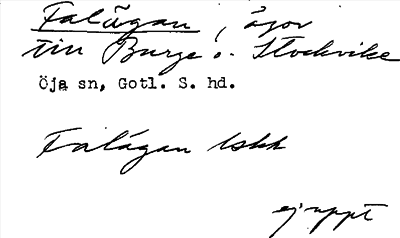 Falågan, ägor
till Burge o. Stockvike
Öja sn, Gotl. S. hd.
Falågan lskk
ej uppt